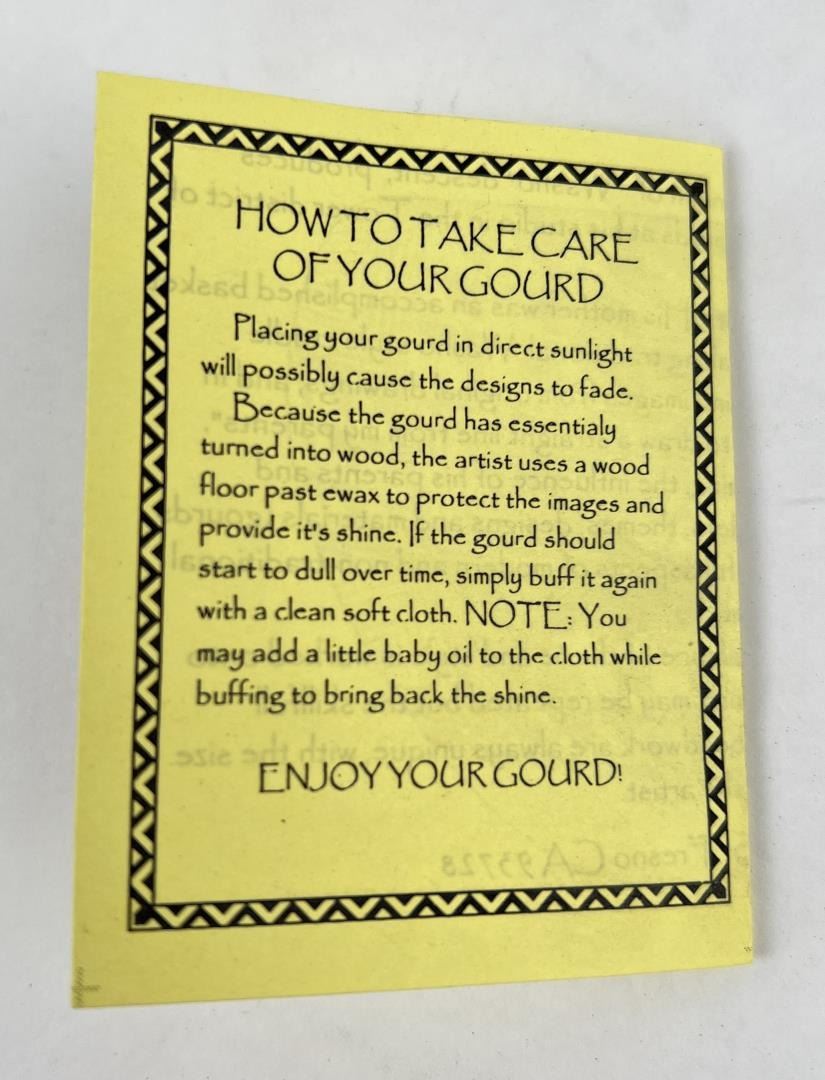 HOW TO TAKE CARE
OF YOUR GOURD
Placing your gourd in direct sunlight
will possibly cause the designs to fade.
Because the gourd has essentialy
turned into wood, the artist uses a wood
floor past ewax to protect the images and
provide it's shine. If the gourd should
start to dull over time, simply buff it again
with a clean soft cloth. NOTE: You
may add a little baby oil to the cloth while
buffing to bring back the shine.
ENJOY YOUR GOURD!